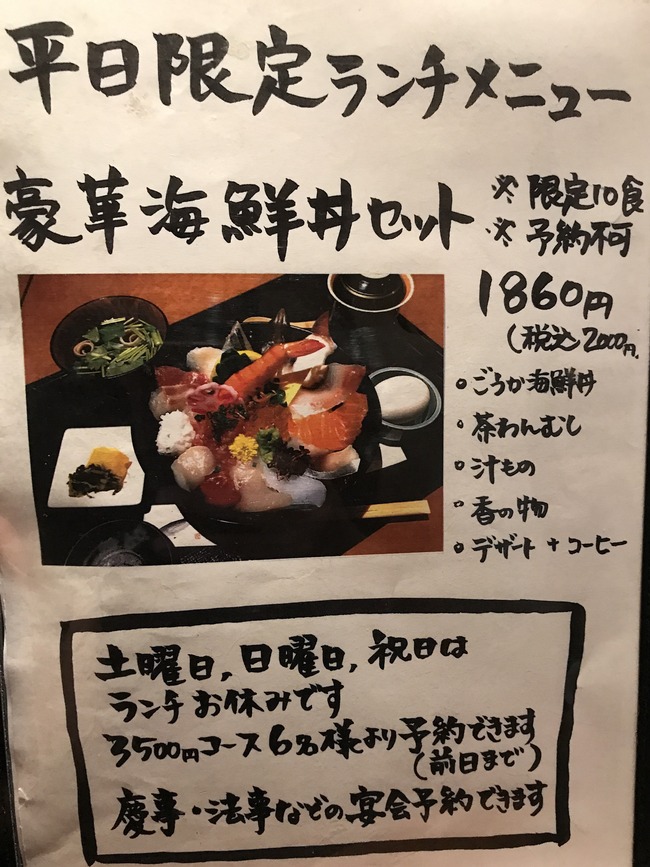 平日限定ランチメニュー
豪華海鮮丼セット
※限定10食
※予約不可
1860円
(税込2000円)
○ごうか海鮮丼
○茶わんむし
○汁もの
○香の物
○デザート+コーヒー
土曜日,日曜日,祝日は
ランチお休みです
3500円コース6名様より予約できます
(前日まで)
慶事・法事などの宴会予約できます